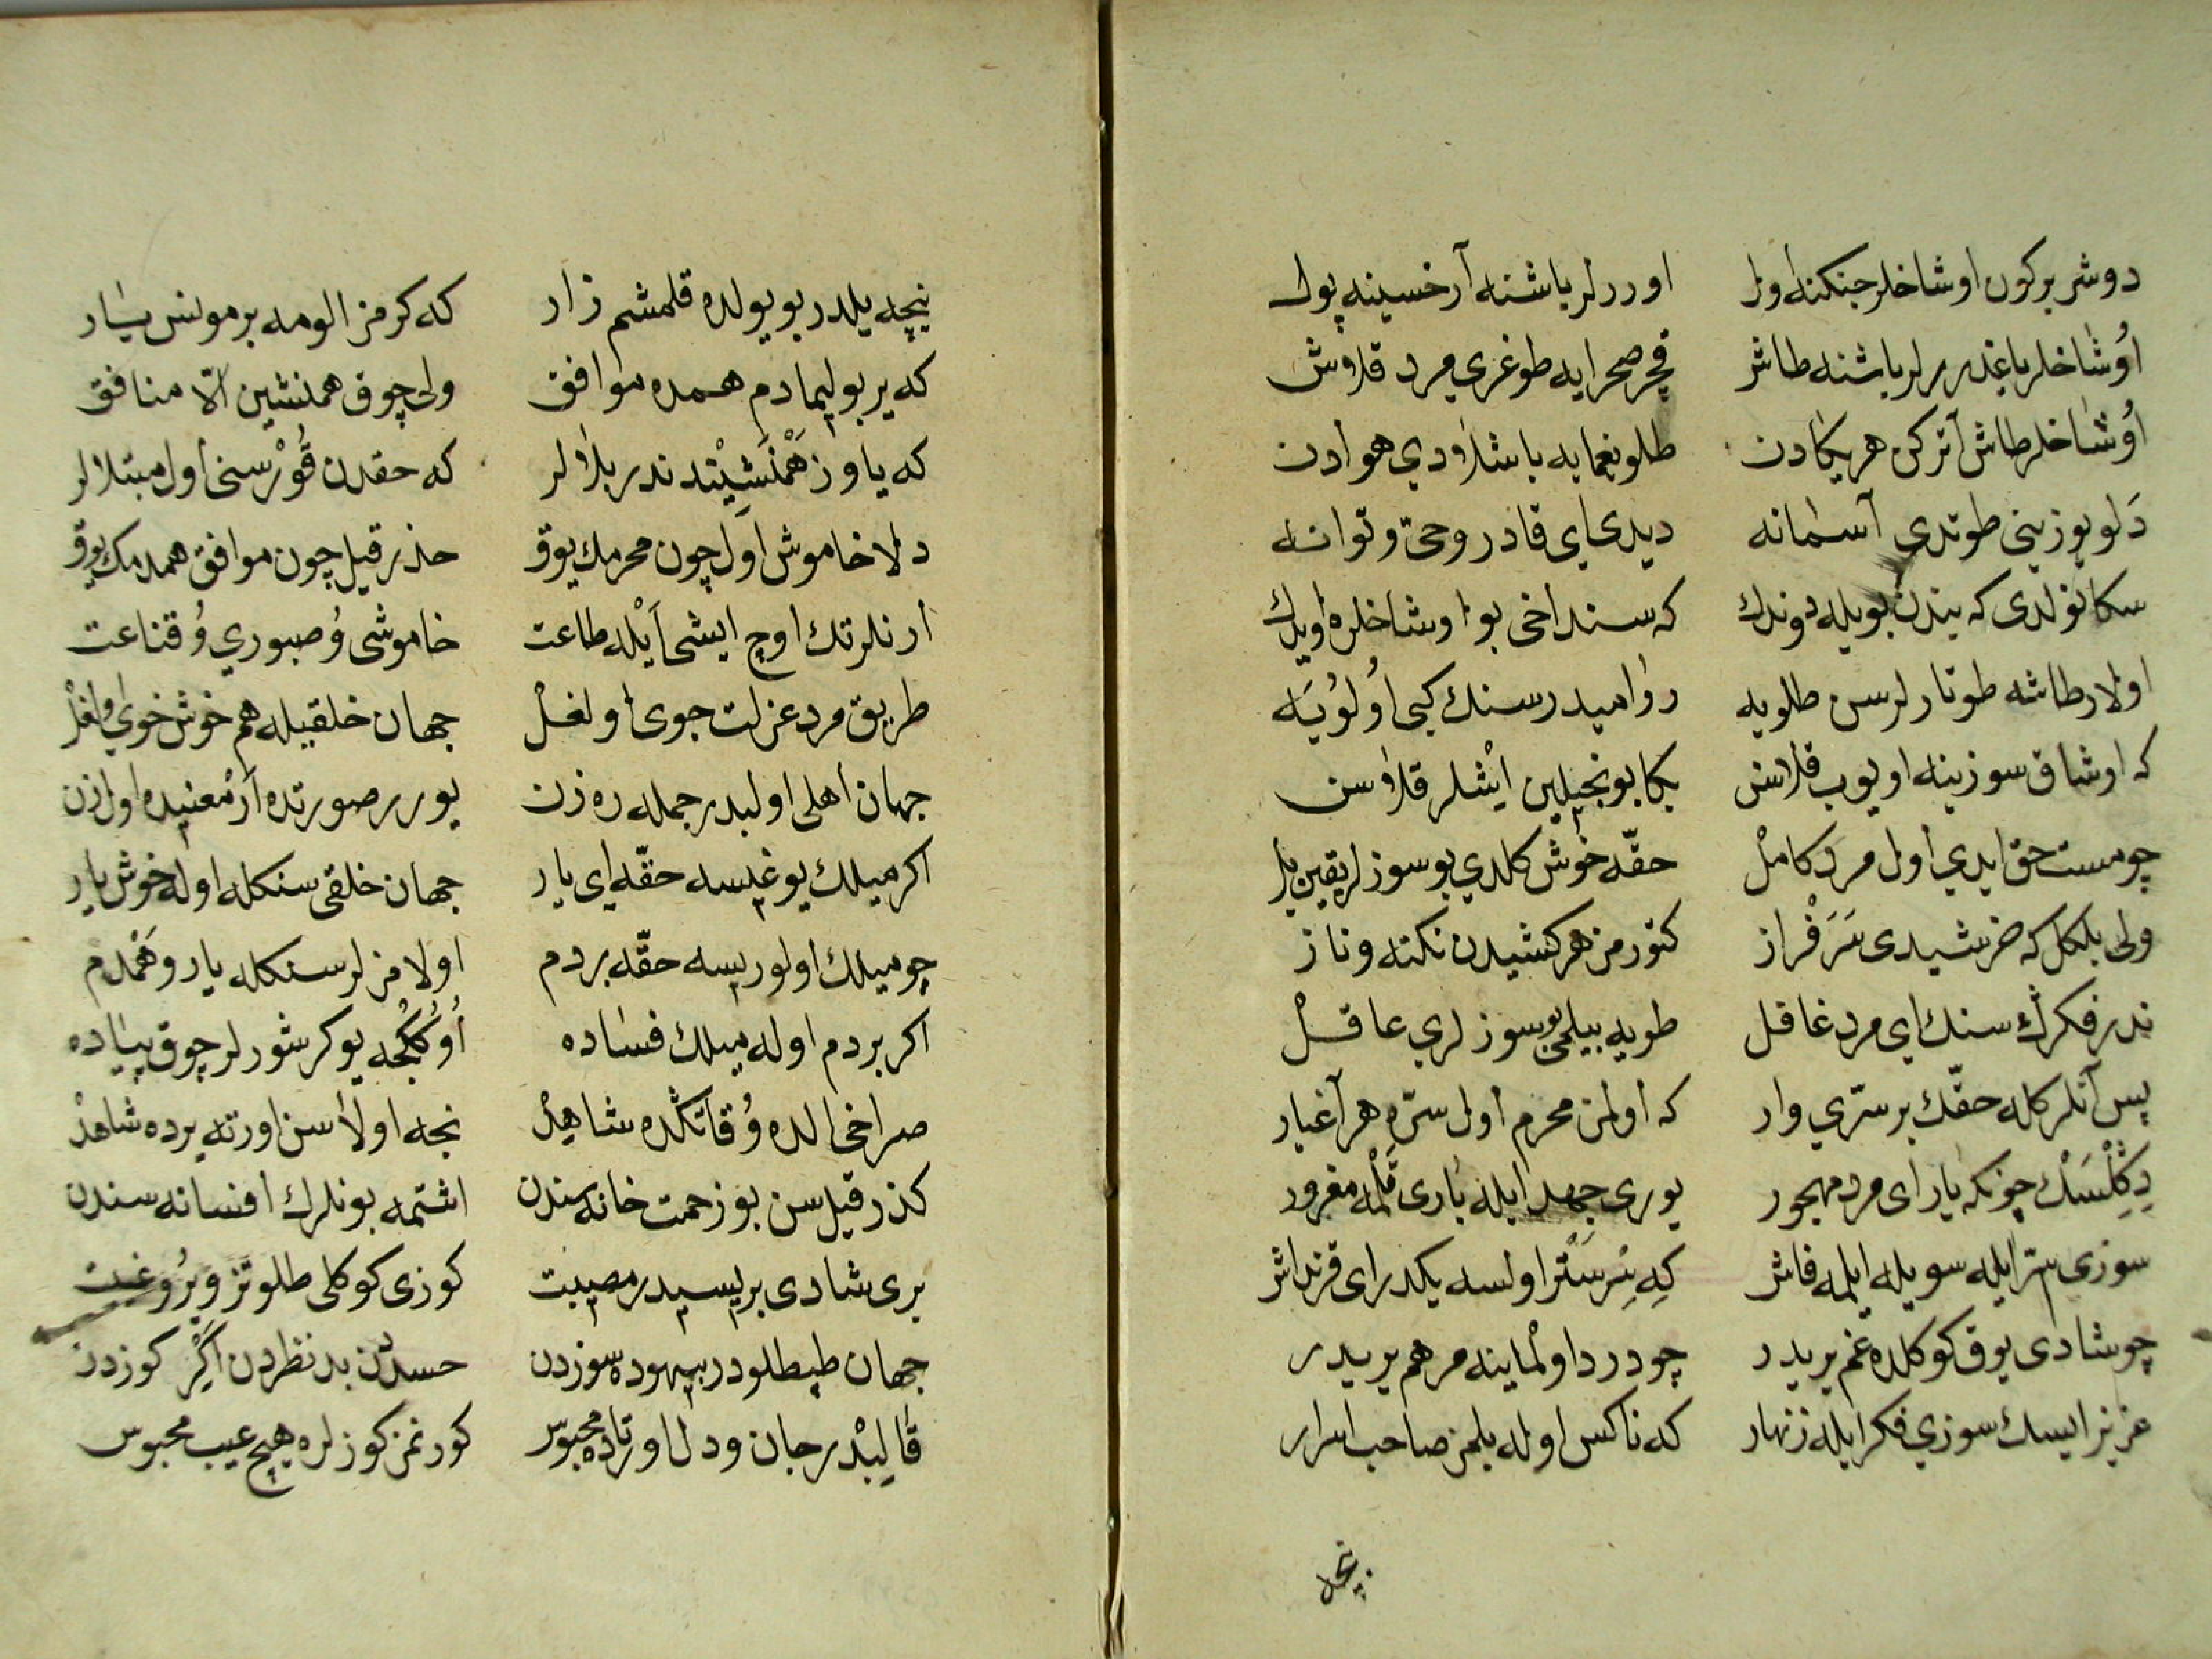 دوشر بركون اوشاخلر جنكنه اول اوررلر باشنه آرخسينه پول
اُوشاخلر ياغدررلر باشنه طاش قچر صحرايه طوغرى مرد قلاوش
اُوشاخلر طاش آتركن هر يكادن طلو يغمايه باشلاودي هوادن
دَلو يوزينى طوتدى آسمانه ديدى اى قادر وحىّ و توانه
سكا نولدى كه بندن بويله دوندك كه سنداخى بو اوشاخلره اويدك
اولار طاشه طوتارلر سن طلويه روا ميدر سنك كبى اُولُويَه
كه اوشاق سوزينه اويوب قلاسن بكا بونجيلين ايشلر قلاسن
چو مست حق ايدي اول مرد كامل حقّه خوش كلدي بو سوزلر يقين بل
ولى بلكل كه هر شيدى سَرَفْراز كتورمز هر كشيدن نكته و ناز
ندر فكرك سنك اي مرد غافل طويه بيلمي بو سوزلري عاقل
پس آنلركله حقّك بر سرّي وار كه اولمز محرم اول سرّه هر اغيار
دكلسك چونكه يار اى مرد مهجور يورى جهد ايله يارى قلمه مغرور
سوزى ستر ايله سويله ايلمه فاش كه سِر سَتْر اولسه يكدر اى قرنداش
چو شادى يوق كوكلده غم يريدر چو درد اولماينه مرهم يريدر
عزيز ايسك سوزي فكر ايله زنهار كه ناكس اوله بلمز صاحب اسرار
نيچه يلدر بو يولده قلمشم زار كه كرمز الومه بر مونس يار
كه ير بوليمادم همدم موافق ولى چوق همنشين الّا منافق
كه ياوز هَمْنَشِيْندندر بلالر كه حقدن قُورْسنى اول مبتلالر
دلا خاموش اول چون محرمك يوق حذر قيل چون موافق همدمك يوق
ارنلرتك اوچ ايشى اَيْله طاعت خاموشى وُ صبوري وُ قناعت
طريق مرد عزلت جوى اولغل جهان خلقيله هم خوش خوى اولغل
جهان اهلى اولبدر جمله ره زن يورر صورتده ار معنيده اول زن
اكر ميلك يوغيسه حقّه اى يار جهان خلقى سنكله اوله خوش يار
چو ميلك اولوريسه حقّه بر دم اولامزلر سنكله يار و هَمْدم
اكر بر دم اوله ميلك فساده اُوكُكْجه يوكرشورلر چوق پياده
صراخى الده وُ قاتكده شاهد نجه اولاسن اورته يرده شاهد
كذر قيل سن بو زحمت خانه سندن اشتمه بونلرك افسانه سندن
برى شادى بريسيدر مصيبت كوزى كوكلى طلو تزوير و غيبت
جهان طپطلودر بيهوده سوزدن حسددن بد نظردن اَكْر كوزدن
قالِبْدر جان و دل اورتاده محبوس كورنمز كوزلره هيچ عيب محبوس
نيچه